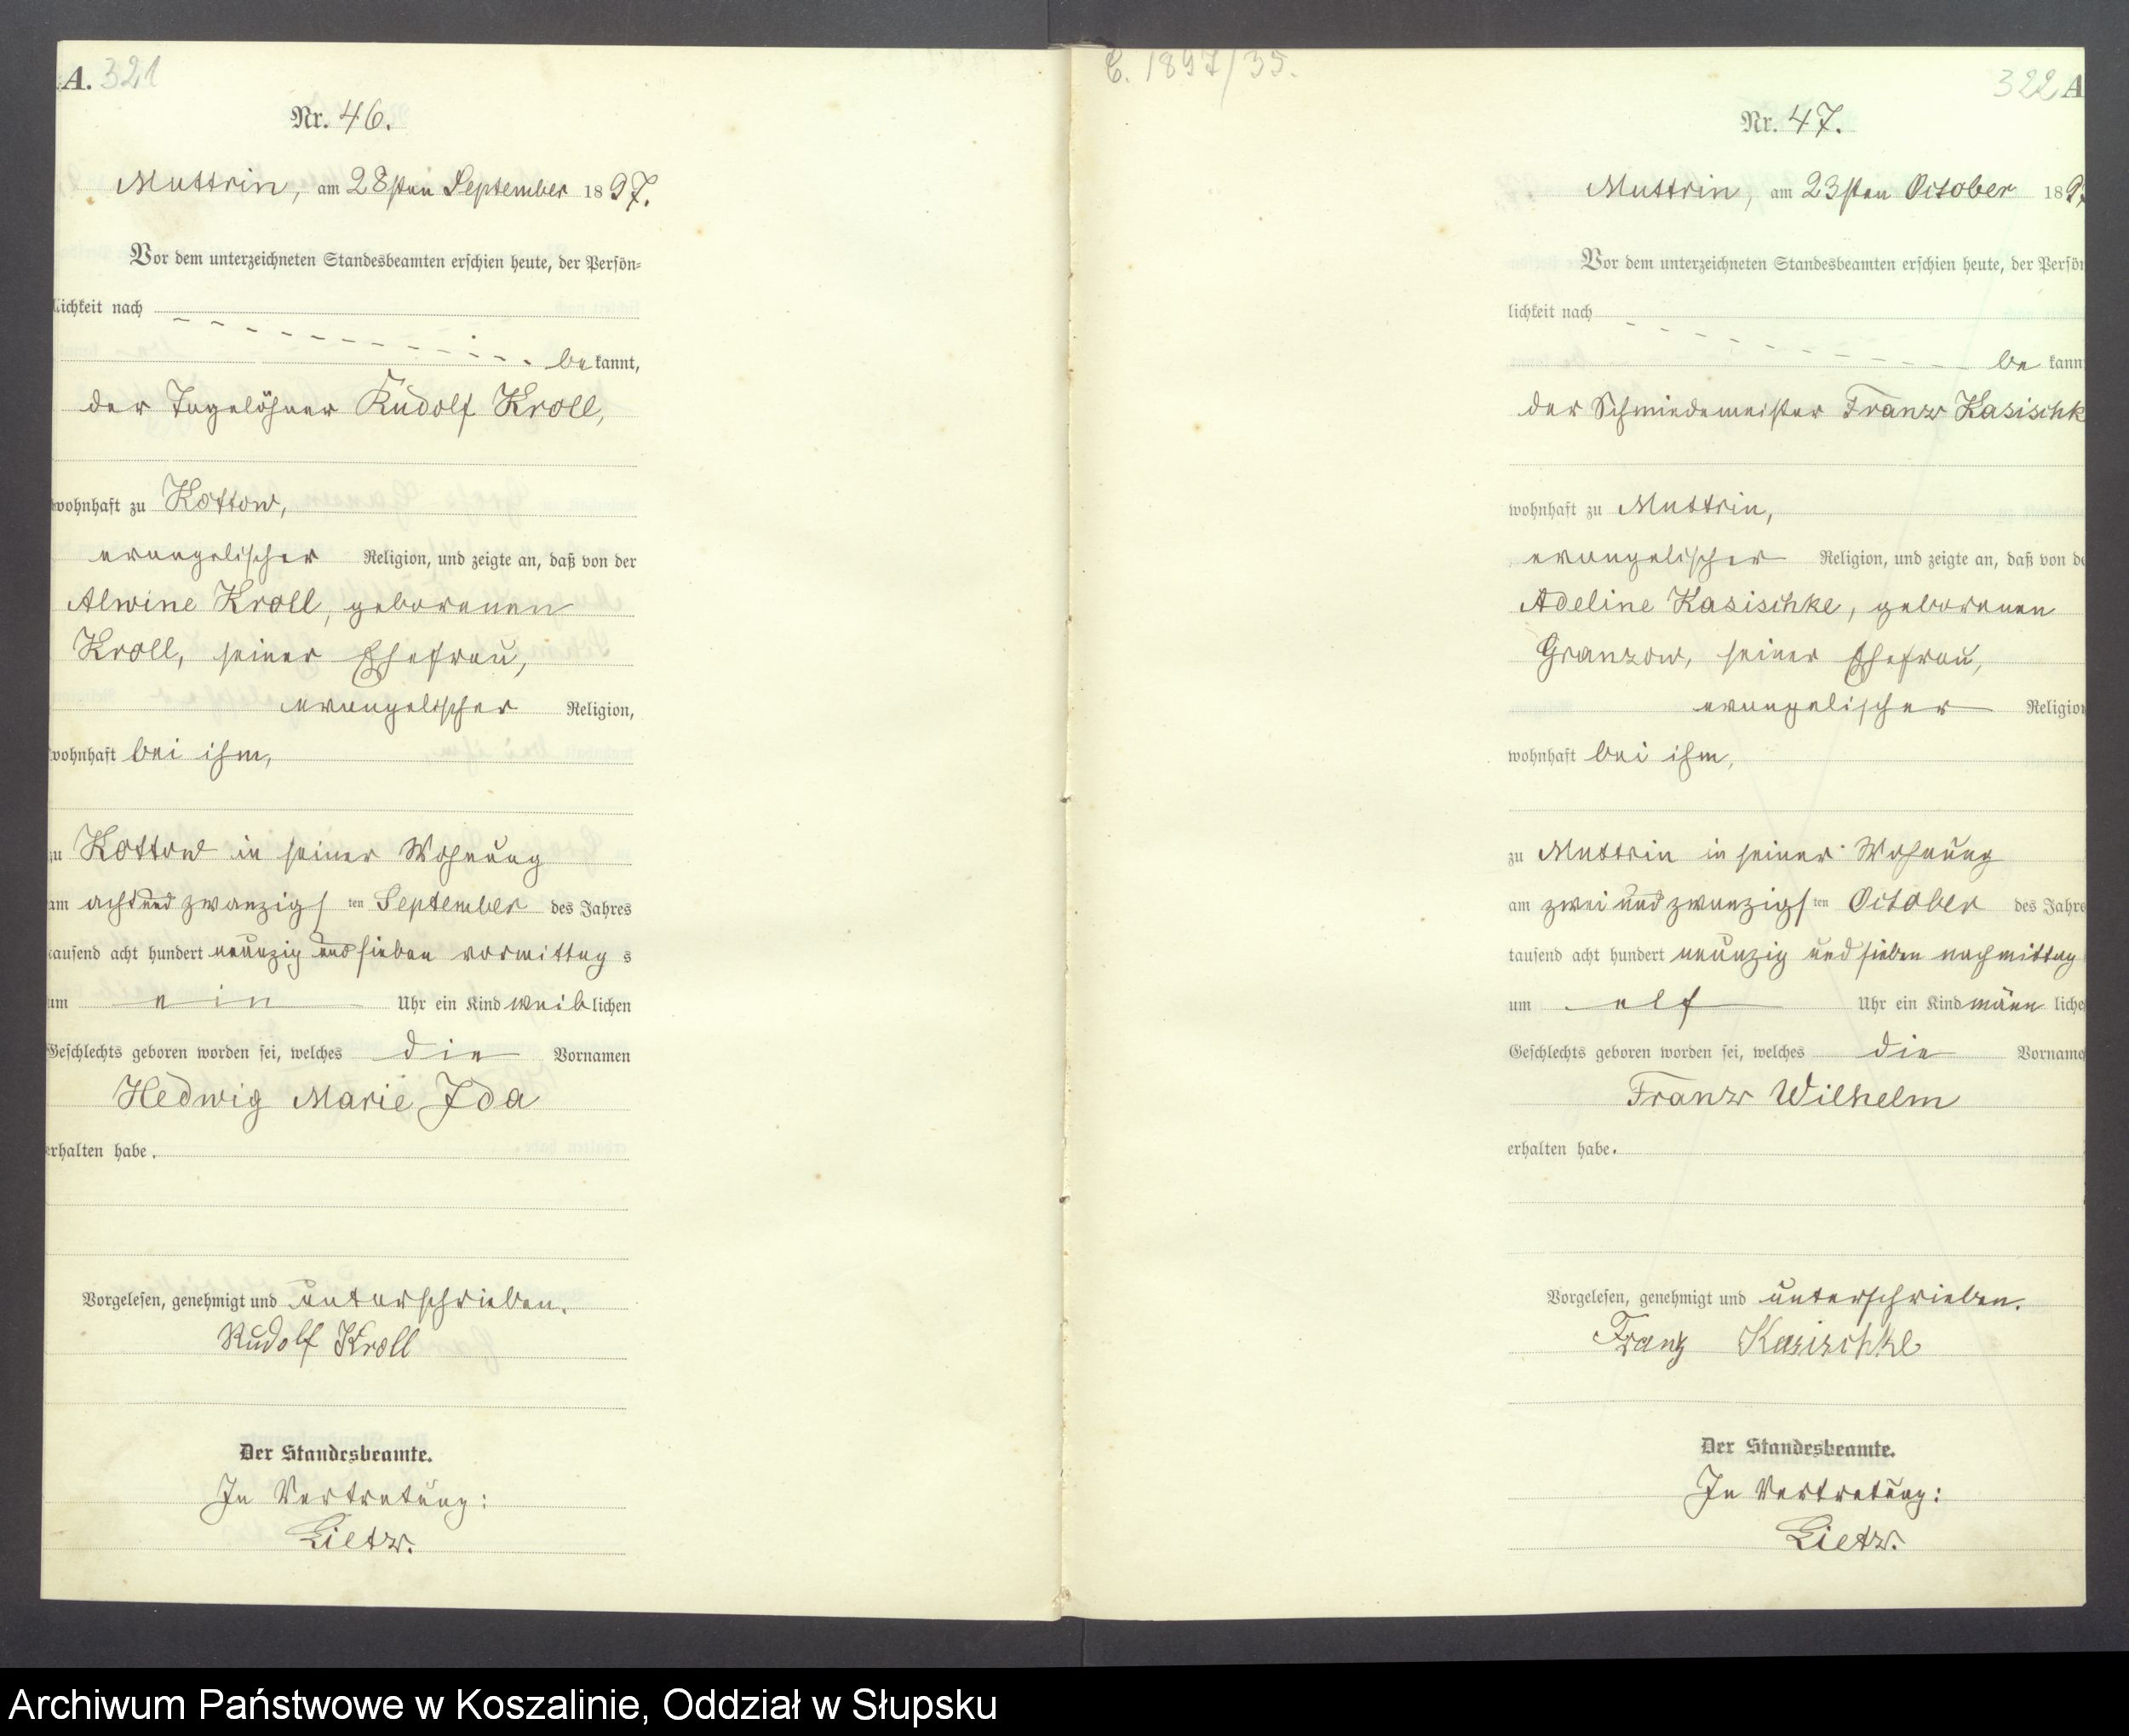 A. 321
Nr. 46.
Muttrin, am 28sten September 1897.
Vor dem unterzeichneten Standesbeamten erschien heute, der Persön-
lichkeit nach
bekannt,
der Tagelöhner Rudolf Kroll,
wohnhaft zu Kottow,
evangelischer Religion, und zeigte an, daß von der
Alwine Kroll, geborenen
Kroll, seiner Ehefrau,
evangelischer Religion,
wohnhaft bei ihm,
zu Kottow in seiner Wohnung
am acht und zwanzigsten September des Jahres
tausend acht hundert neunzig und sieben vormittags
um ein Uhr ein Kind weiblichen
Geschlechts geboren worden sei, welches die Vornamen
Hedwig Marie Ida
erhalten habe.
Vorgelesen, genehmigt und unterschrieben.
Rudolf Kroll
Der Standesbeamte.
In Vertretung:
Lietz.
C. 1897/35.
322 A
Nr. 47.
Muttrin, am 23sten October 189
Vor dem unterzeichneten Standesbeamten erschien heute, der Persön
lichkeit nach
be kann
der Schmiedemeister Franz Kasischk
wohnhaft zu Muttrin,
evangelischer Religion, und zeigte an, daß von de
Adeline Kasischke, geborenen
Granzow, seiner Ehefrau,
evangelischer Religion
wohnhaft bei ihm,
zu Muttrin in seiner Wohnung
am zwei und zwanzigsten October des Jahre
tausend acht hundert neunzig und sieben nachmittag
um elf Uhr ein Kind männ liche
Geschlechts geboren worden sei, welches die Vorname
Franz Wilhelm
erhalten habe.
Vorgelesen, genehmigt und unterschrieben.
Franz Kasischke
Der Standesbeamte.
In Vertretung:
Lietz.
Archiwum Państwowe w Koszalinie, Oddział w Słupsku